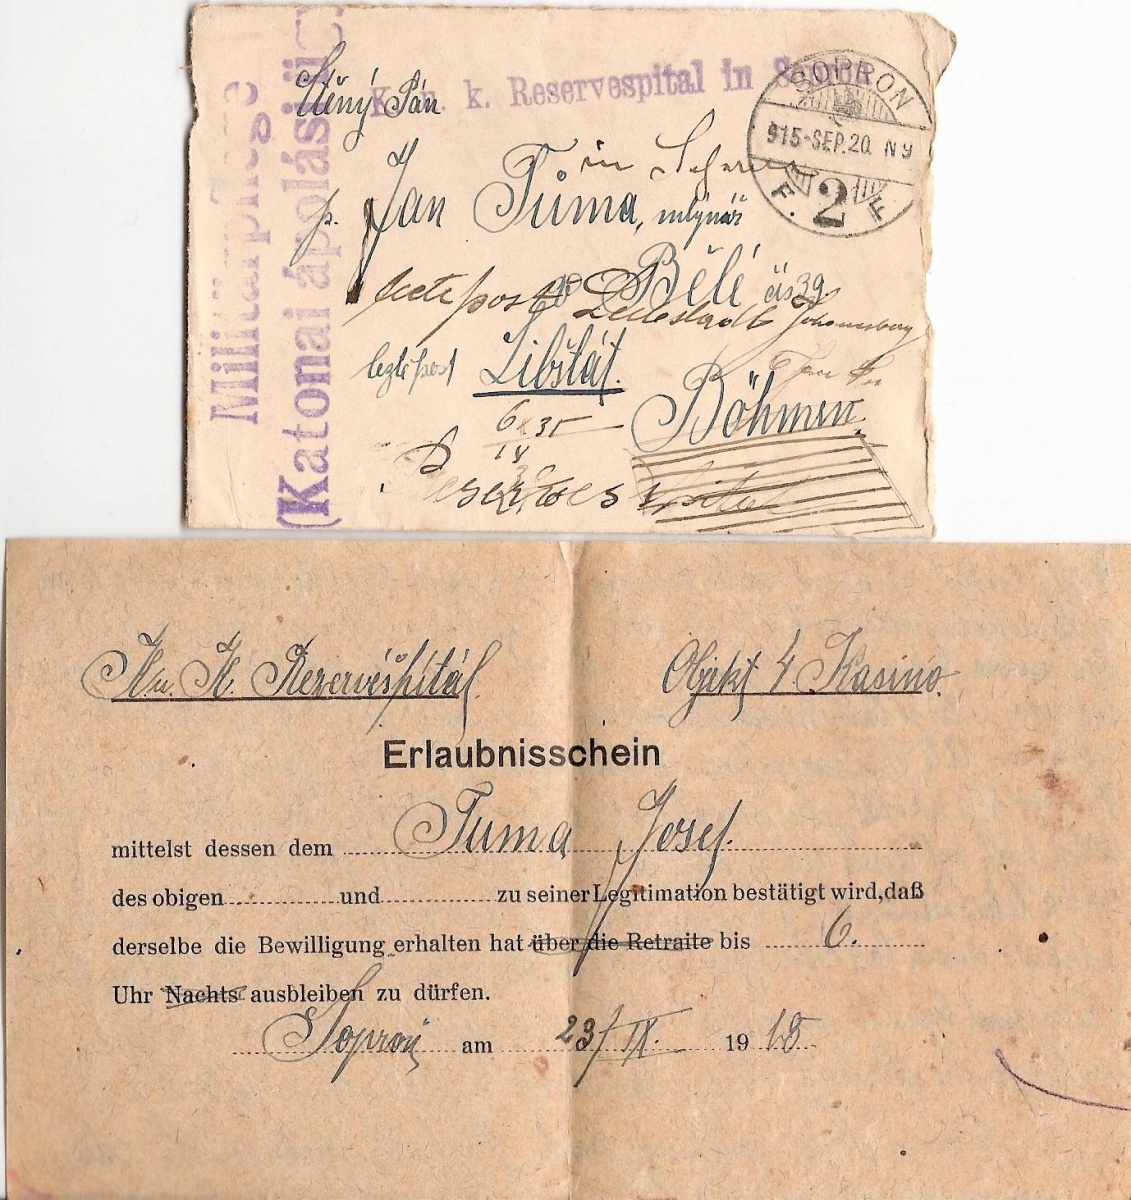 Militärpflege
(Katonai ápolási ü
K. u. k. Reservespital in Sopron
SOPRON
915-SEP.20. N9
F. 2 F
Ctěný Pán
in
p. Jan Tůma, mlynář
Bělé čís 39.
letzte post Johannesburg
legte post Libštát.
Böhmen.
6
K. u. K. Rezervéšpitál.
Objekt 4 Kasino.
Erlaubnisschein
mittelst dessen dem Tuma Josef.
des obigen und zu seiner Legitimation bestätigt wird, daß
derselbe die Bewilligung erhalten hat über die Retraite bis 6.
Uhr Nachts ausbleiben zu dürfen.
Soproň am 23/IX. 1915